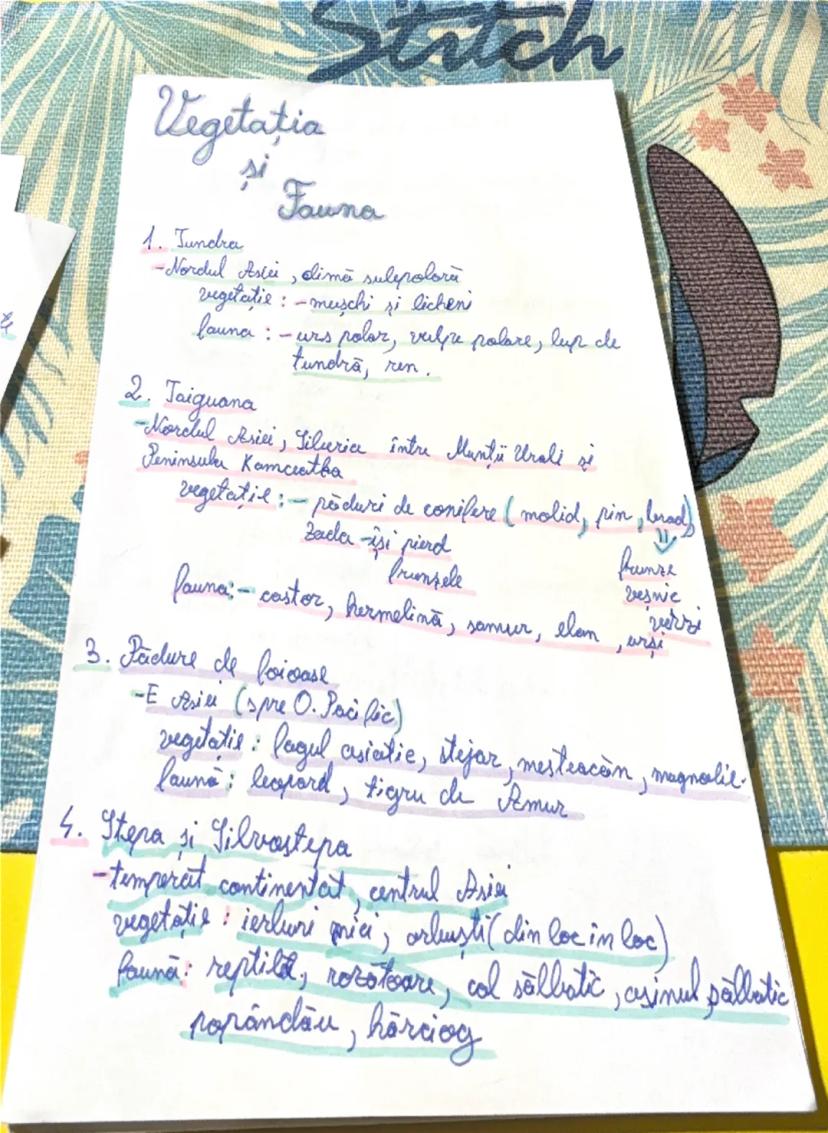 Stitch
Vegetația
și
Fauna
1. Tundra
-Nordul Asiei, climă subpolară
vegetație : - mușchi și licheni
fauna : - urs polar, vulpe polare, lup de
tundră, ren.
2. Taiguana
-Nordul Asiei, Siberia între Munții Urali și
Peninsula Kamceatka
vegetație : - păduri de conifere (molid, pin, brad)
zada - își pierd
frunzele
frunze
veșnic
verzi
fauna: - castor, hermelină, samur, elan, urși
3. Pădure de foioase
-E Asiei (spre O. Pacific)
vegetație : fagul asiatic, stejar, mesteacăn, magnolie.
faună : leopard, tigru de Amur
4. Stepa și Silvostepa
-temperat continentat, centrul Asiei
vegetație : ierburi mici, arbuști (din loc in loc)
faună: reptile, rozătoare, cal sălbatic, asinul sălbatic
popândău, hârciog